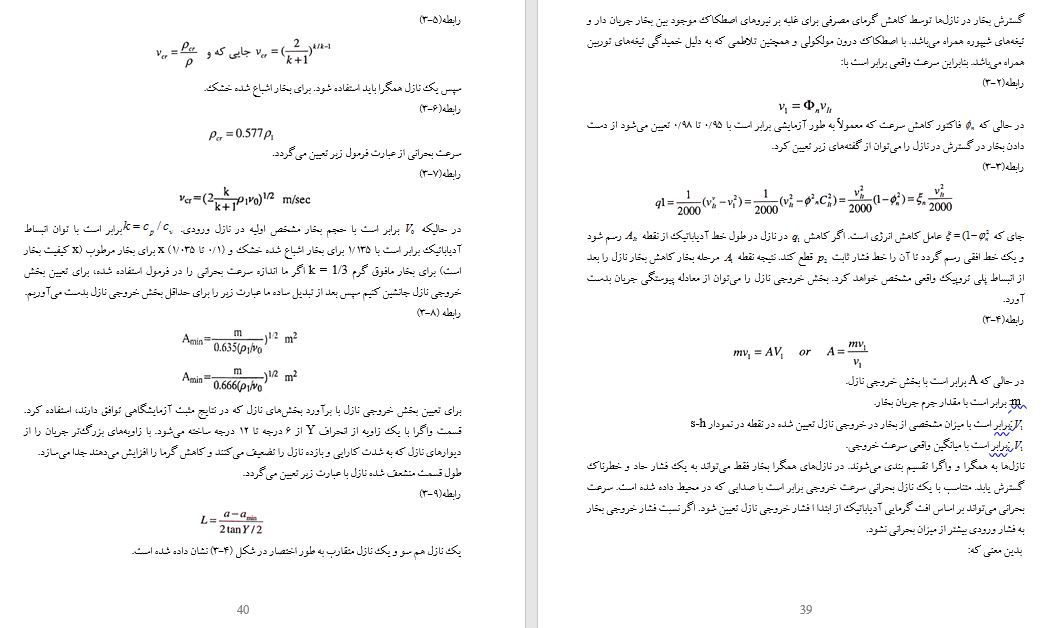 گسترش بخار در نازل‌ها توسط کاهش گرمای مصرفی برای غلبه بر نیروهای اصطکاک موجود بین بخار جریان دار و
تیغه‌های شیپوره همراه می‌باشد. با اصطکاک درون مولکولی و همچنین تلاطمی که به دلیل خمیدگی تیغه‌های توربین
همراه می‌باشد. بنابراین سرعت واقعی برابر است با:
رابطه(۲-۳)
v₁ = Φₙvₗₜ
در حالی که ϕₙ فاکتور کاهش سرعت که معمولاً به طور آزمایشی برابر است با ۰/۹۵ تا ۰/۹۸ تعیین می‌شود از دست
دادن بخار در گسترش در نازل را می‌توان از گفته‌های زیر تعیین کرد.
رابطه(۳-۳)
q1 = 1/2000 (v²ₗₜ − v²₁) = 1/2000 (v²ₗₜ − ϕ²ₙC²ₗₜ) = v²ₗₜ/2000 (1−ϕ²ₙ) = ξₙ v²ₗₜ/2000
جای که ξ = (1−φ²ₙ عامل کاهش انرژی است. اگر کاهش q₁ در نازل در طول خط آدیاباتیک از نقطه A₁ₜ رسم شود
و یک خط افقی رسم گردد تا آن را خط فشار ثابت p₂ قطع کند. نتیجه نقطه A₁ مرحله بخار کاهش بخار نازل را بعد
از انبساط پلی تروپیک واقعی مشخص خواهد کرد. بخش خروجی نازل را می‌توان از معادله پیوستگی جریان بدست
آورد.
رابطه(۴-۳)
mv₁ = AV₁ or A = mv₁/v₁
در حالی که A برابر است با بخش خروجی نازل.
m برابر است با مقدار جرم جریان بخار.
V₁ برابر است با میزان مشخصی از بخار در خروجی نازل تعیین شده در نقطه در نمودار s-h
V₁ برابر است با میانگین واقعی سرعت خروجی.
نازل‌ها به همگرا و واگرا تقسیم بندی می‌شوند. در نازل‌های همگرا بخار فقط می‌تواند به یک فشار حاد و خطرناک
گسترش یابد. متناسب با یک نازل بحرانی سرعت خروجی برابر است با صدایی که در محیط داده شده است. سرعت
بحرانی می‌تواند بر اساس افت گرمایی آدیاباتیک از ابتدا ا فشار خروجی نازل تعیین شود. اگر نسبت فشار خروجی بخار
به فشار ورودی بیشتر از میزان بحرانی نشود.
بدین معنی که:
39
رابطه(۵-۳)
v_cr = ρ_cr/ρ جایی که و v_cr = (2/(k+1))^(k/k−1)
سپس یک نازل همگرا باید استفاده شود. برای بخار اشباع شده خشک.
رابطه(۶-۳)
ρ_cr = 0.577ρ₁
سرعت بحرانی از عبارت فرمول زیر تعیین می‌گردد.
رابطه(۷-۳)
v_cr = (2 k/(k+1) ρ₁v₀)^1/2 m/sec
در حالیکه V₀ برابر است با حجم بخار مشخص اولیه در نازل ورودی. k = c_p / c_v برابر است با توان انبساط
آدیاباتیک برابر است با ۱/۱۳۵ برای بخار اشباع شده خشک و (۰/۱ تا ۱/۰۳۵) x برای بخار مرطوب (x کیفیت بخار
است) برای بخار مافوق گرم k = 1/3 اگر ما اندازه سرعت بحرانی را در فرمول استفاده شده، برای تعیین بخش
خروجی نازل جانشین کنیم سپس بعد از تبدیل ساده ما عبارت زیر را برای حداقل بخش خروجی نازل بدست می‌آوریم.
رابطه (۸-۳)
A_min = m/0.635(ρ₁/v₀)^1/2 m²
A_min = m/0.666(ρ₁/v₀)^1/2 m²
برای تعیین بخش خروجی نازل با برآورد بخش‌های نازل که در نتایج مثبت آزمایشگاهی توافق دارند، استفاده کرد.
قسمت واگرا با یک زاویه از انحراف Y از ۶ درجه تا ۱۲ درجه ساخته می‌شود. با زاویه‌های بزرگ‌تر جریان را از
دیوارهای نازل که به شدت کارایی و بازده نازل را تضعیف می‌کنند و کاهش گرما را افزایش می‌دهند جدا می‌سازد.
طول قسمت منشعف شده نازل با عبارت زیر تعیین می‌گردد.
رابطه(۹-۳)
L = (a − a_min)/(2 tan Y / 2)
یک نازل هم سو و یک نازل متقارب به طور اختصار در شکل (۴-۳) نشان داده شده است.
40